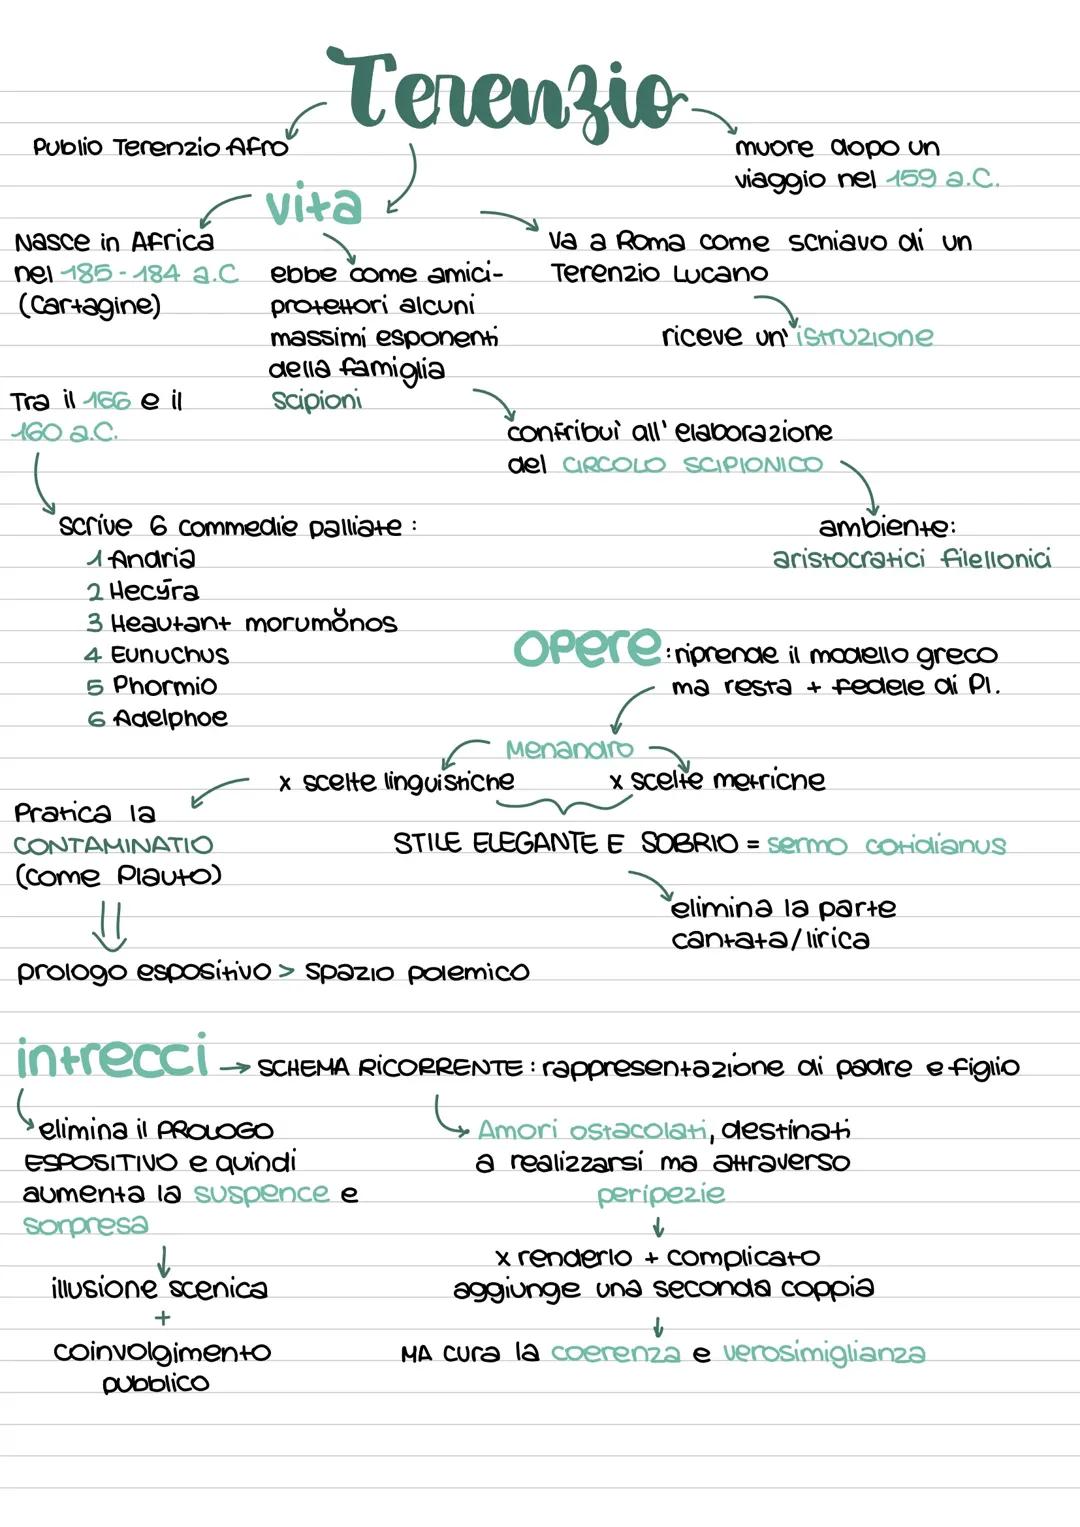 Terenzio
Publio Terenzio Afro
muore dopo un
viaggio nel 159 a.C.
vita
Nasce in Africa
nel 185-184 a.C
(Cartagine)
ebbe come amici-
protettori alcuni
massimi esponenti
della famiglia
Scipioni
Va a Roma come schiavo di un
Terenzio Lucano
riceve un' istruzione
Tra il 166 e il
160 a.C.
contribuì all' elaborazione
del CIRCOLO SCIPIONICO
scrive 6 commedie palliate:
1 Andria
2 Hecȳra
3 Heautant morumŏnos
4 Eunuchus
5 Phormio
6 Adelphoe
ambiente:
aristocratici filellonici
opere: riprende il modello greco
ma resta + fedele di Pl.
Menandro
x scelte linguistiche
x scelte metriche
Pratica la
CONTAMINATIO
(come Plauto)
STILE ELEGANTE E SOBRIO = sermo cotidianus
elimina la parte
cantata/lirica
prologo espositivo > spazio polemico
intrecci → SCHEMA RICORRENTE: rappresentazione di padre e figlio
elimina il PROLOGO
ESPOSITIVO e quindi
aumenta la suspence e
sorpresa
illusione scenica
+
coinvolgimento
pubblico
Amori ostacolati, destinati
a realizzarsi ma attraverso
peripezie
x renderlo + complicato
aggiunge una seconda coppia
MA cura la coerenza e verosimiglianza